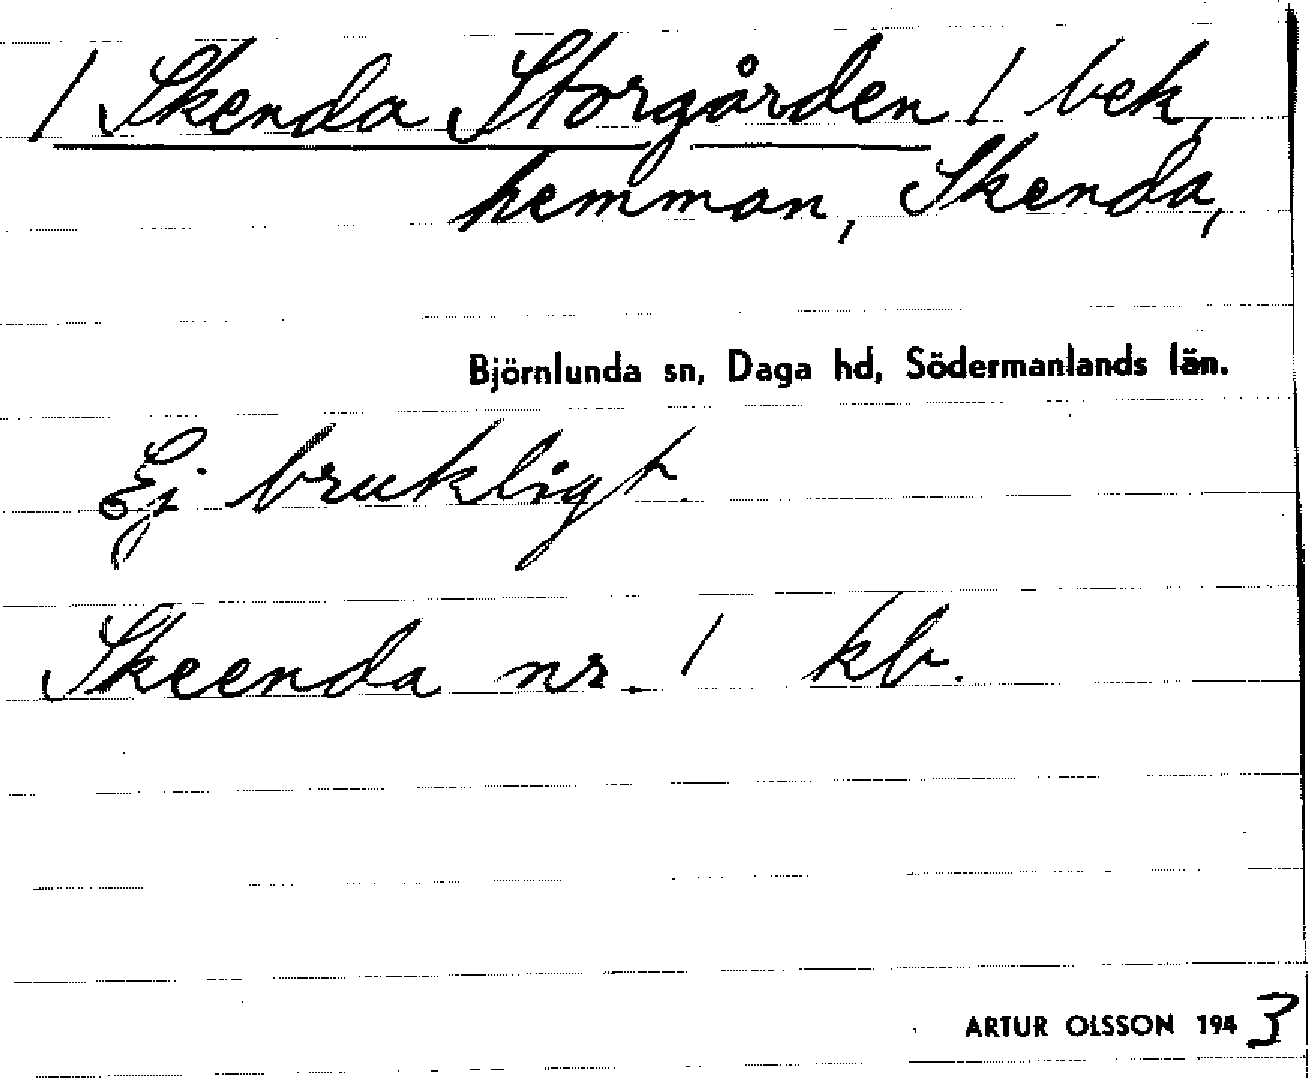 / Skenda Storgården / bek,
hemman, Skenda,
Björnlunda sn, Daga hd, Södermanlands län.
Ej brukligt.
Skeenda nr. 1 kb.
ARTUR OLSSON 1943